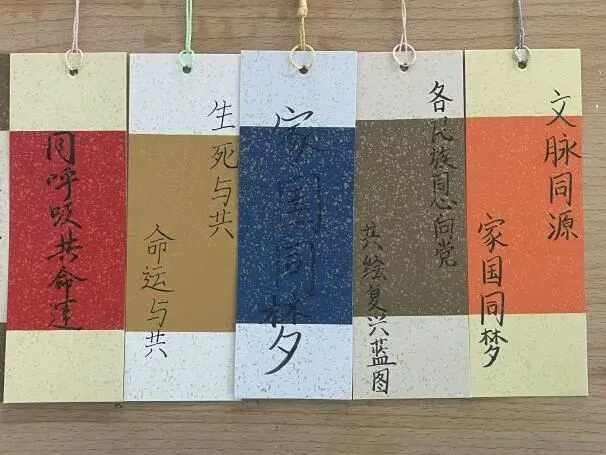 同呼吸共命运
生死与共
命运与共
家国同梦
各民族同心向党
共绘复兴蓝图
文脉同源
家国同梦